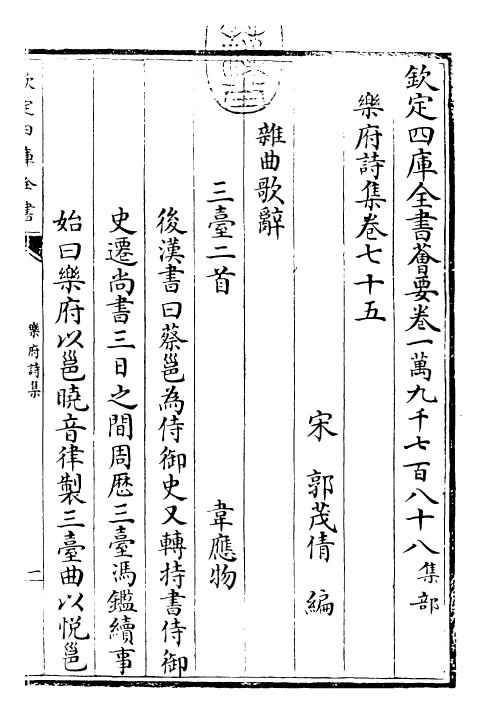 欽定四庫全書薈要卷一萬九千七百八十八集部
樂府詩集卷七十五
宋 郭茂倩 編
雜曲歌辭
三臺二首 韋應物
後漢書曰蔡邕為侍御史又轉持書侍御
史遷尚書三日之間周歷三臺馮鑑續事
始曰樂府以邕曉音律製三臺曲以悅邕
欽定四庫全書
樂府詩集
一